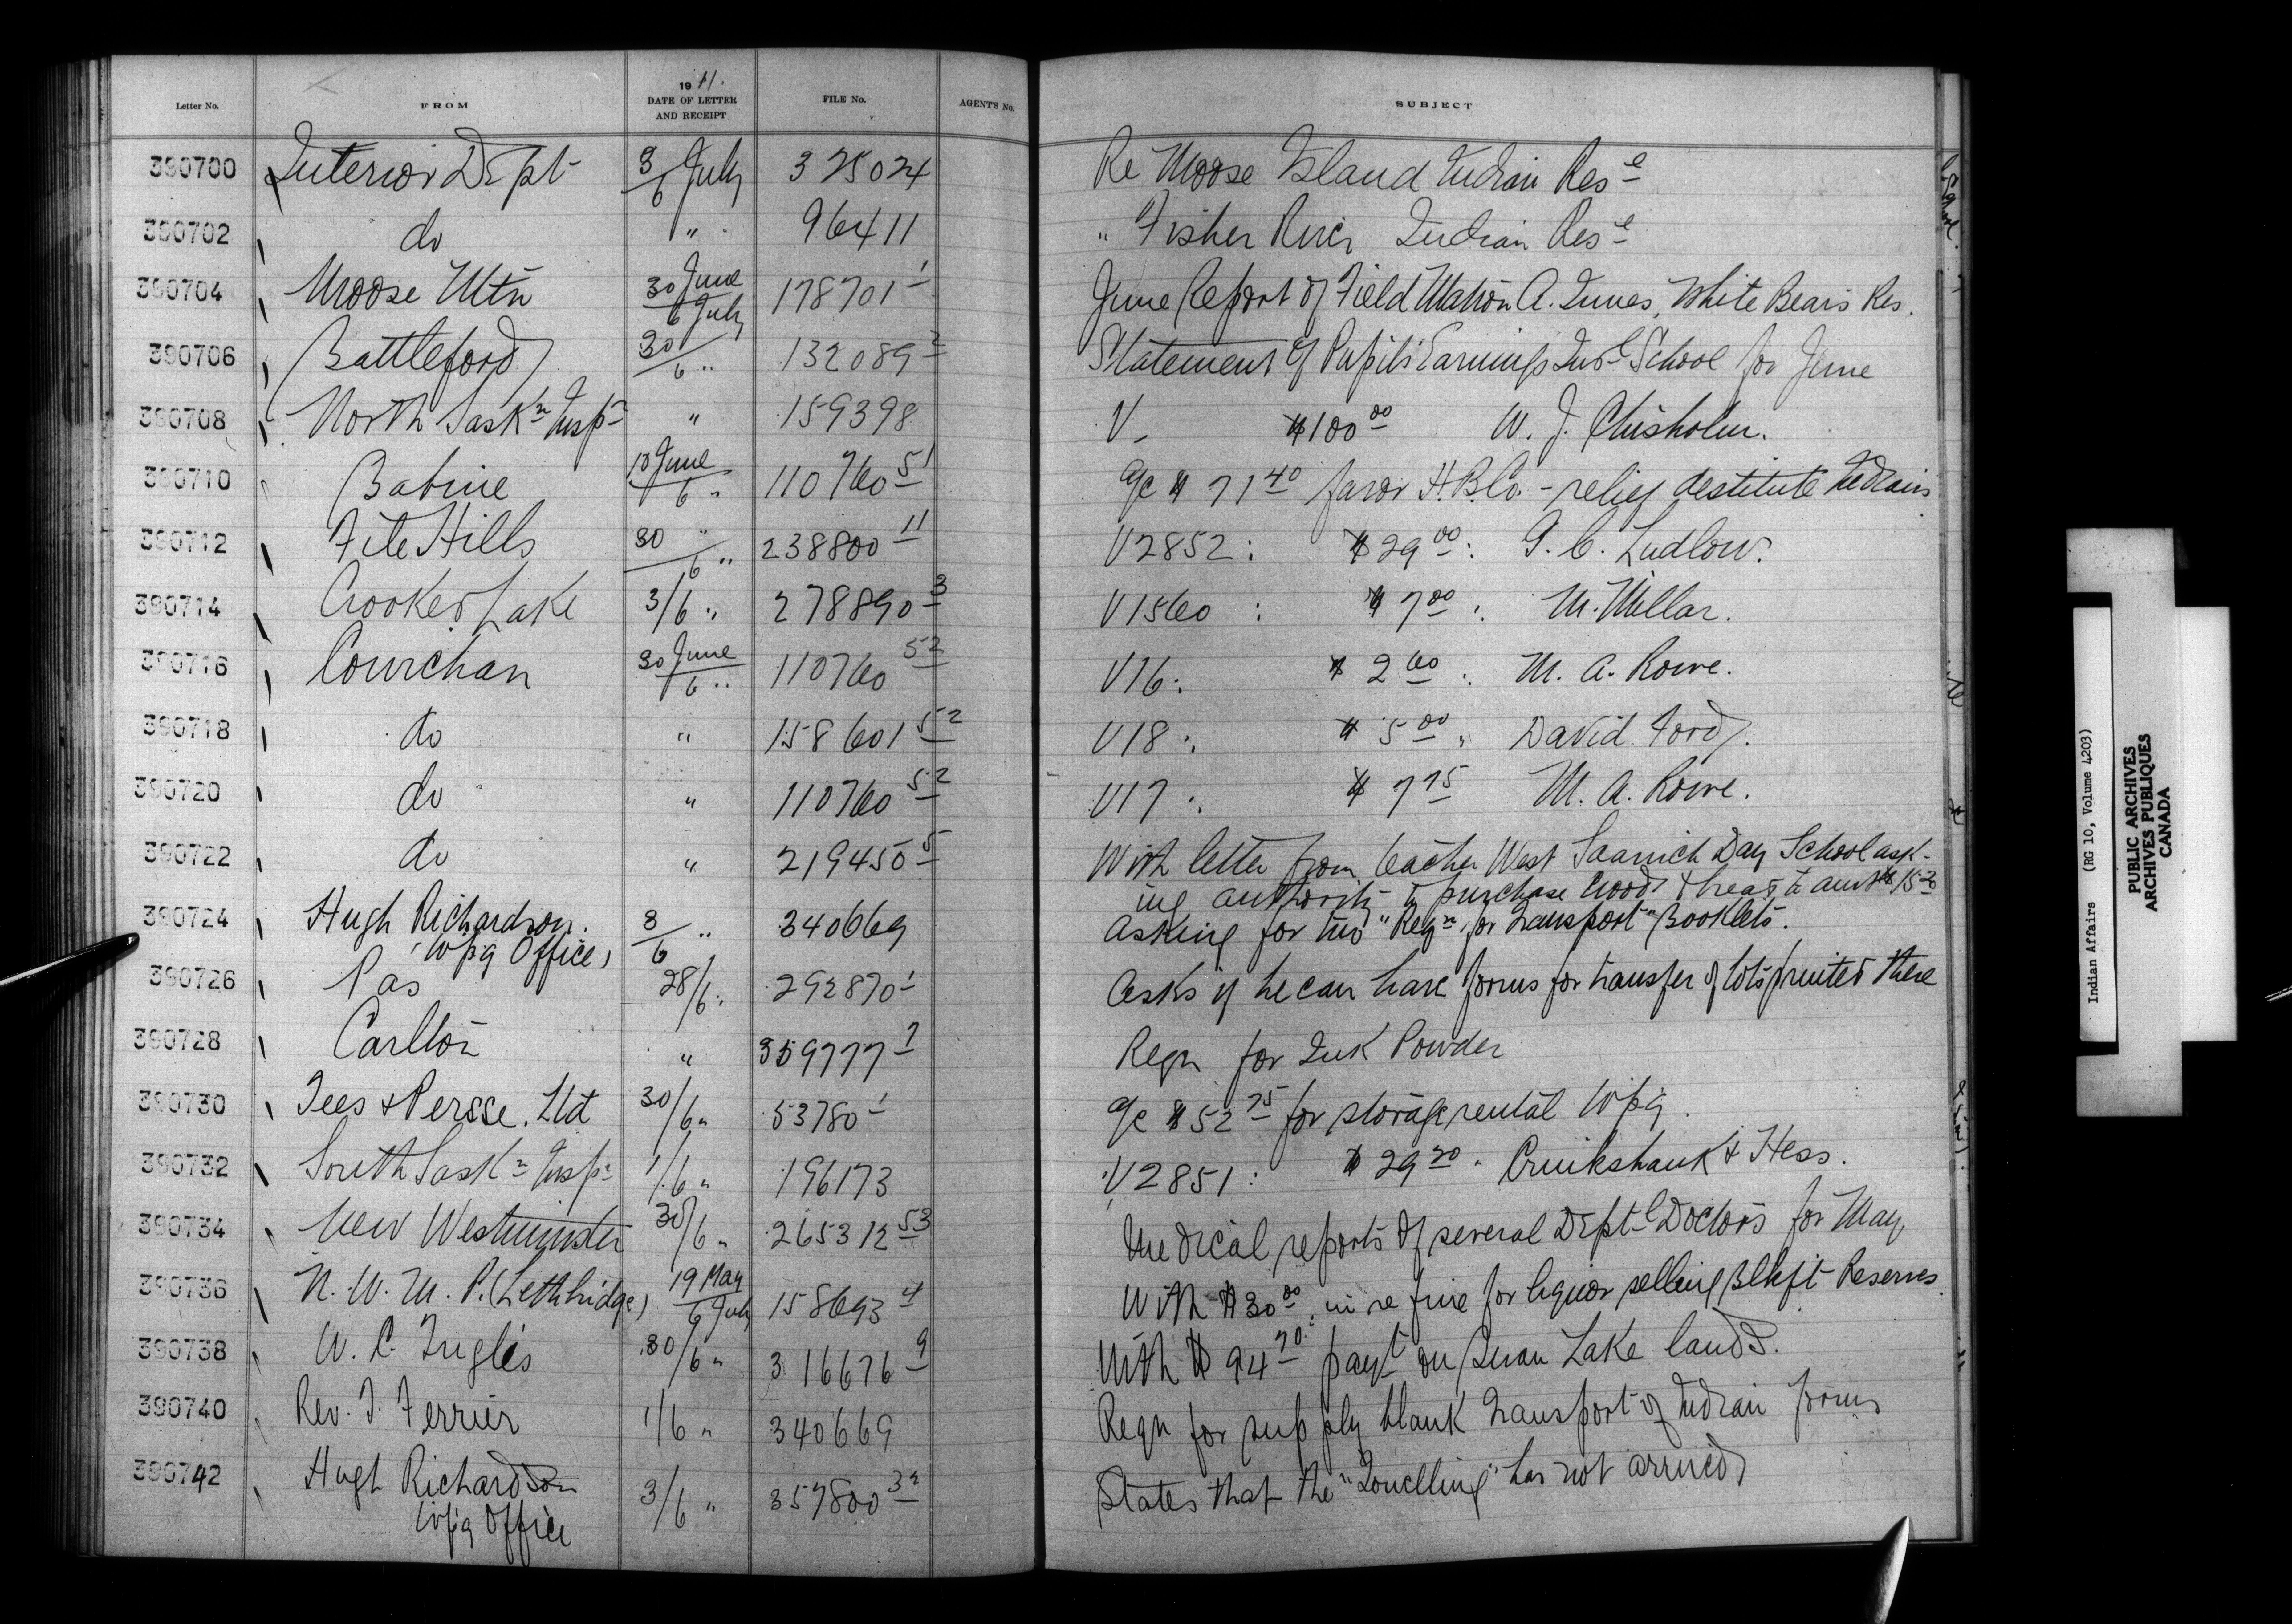 Letter No. FROM 1911. DATE OF LETTER AND RECEIPT FILE No. AGENT'S No. SUBJECT
390700 Interior Dept 3/6 July 325024 Re Moose Island Indian Res e
390702 do " 96411 " Fisher River Indian Res e
390704 Moose Mtn 30 June/6 July 178701 1 June Report of Field Matron A. Innes, White Bear's Res.
390706 Battleford 30/6 " 132089 2 Statement of Pupils' Earnings Ind l School for June
390708 North Sask n Insp r " 159398 V_ $100 00 W. J. Chisholm.
390710 Babine 10 June/6 " 110760 51 a/c $71 40 favor H.B.Co. - relief destitute Indians
390712 File Hills 30 "/6 " 238800 11 V2852: $29 00: G. C. Ludlow.
390714 Crooked Lake 3/6 " 278890 3 V1560: $7 00: M. Millar.
390716 Cowichan 30 June/6 " 110760 52 V16: $2 60: M. A. Rowe.
390718 do " 158601 52 V18: $5 00 " David Ford.
390720 do " 110760 52 V17: $7 75 M. A. Rowe.
390722 do " 219450 5 With letter from teacher West Saanich Day School ask-
ing authority to purchase wood
390724 Hugh Richardson. 3/6 " 340669 Asking for two "Reqn for Transport" Booklets.
(Wpg Office)
390726 Pas 28/6 " 292870 1 Asks if he can have forms for transfer of lots printed there
390728 Carlton " 359777 1 Reqn for Ink Powder
390730 Tees & Persse. Ltd 30/6 " 53780 1 a/c $52 75 for storage rental Wpg.
390732 South Sask n Insp r 1/6 " 196173 V2851: $29 20 " Cruikshank & Hess.
390734 New Westminster 30/6 " 265312 53 Medical reports of several Dept l Doctors for May
390736 N. W. M. P. (Lethbridge) 19 May/6 July 158693 4 With $30 00: in re fine for liquor selling Blkft Reserves
390738 W. C. Inglis 30/6 " 316676 9 With $94 70: pay t on Swan Lake lands.
390740 Rev. T. Ferrier 1/6 " 340669 Reqn for supply blank Transport of Indian forms
390742 Hugh Richardson 3/6 " 357800 32 States that the has not arrived
Wpg Office
Indian Affairs (RG 10, Volume 4203)
PUBLIC ARCHIVES
ARCHIVES PUBLIQUES
CANADA